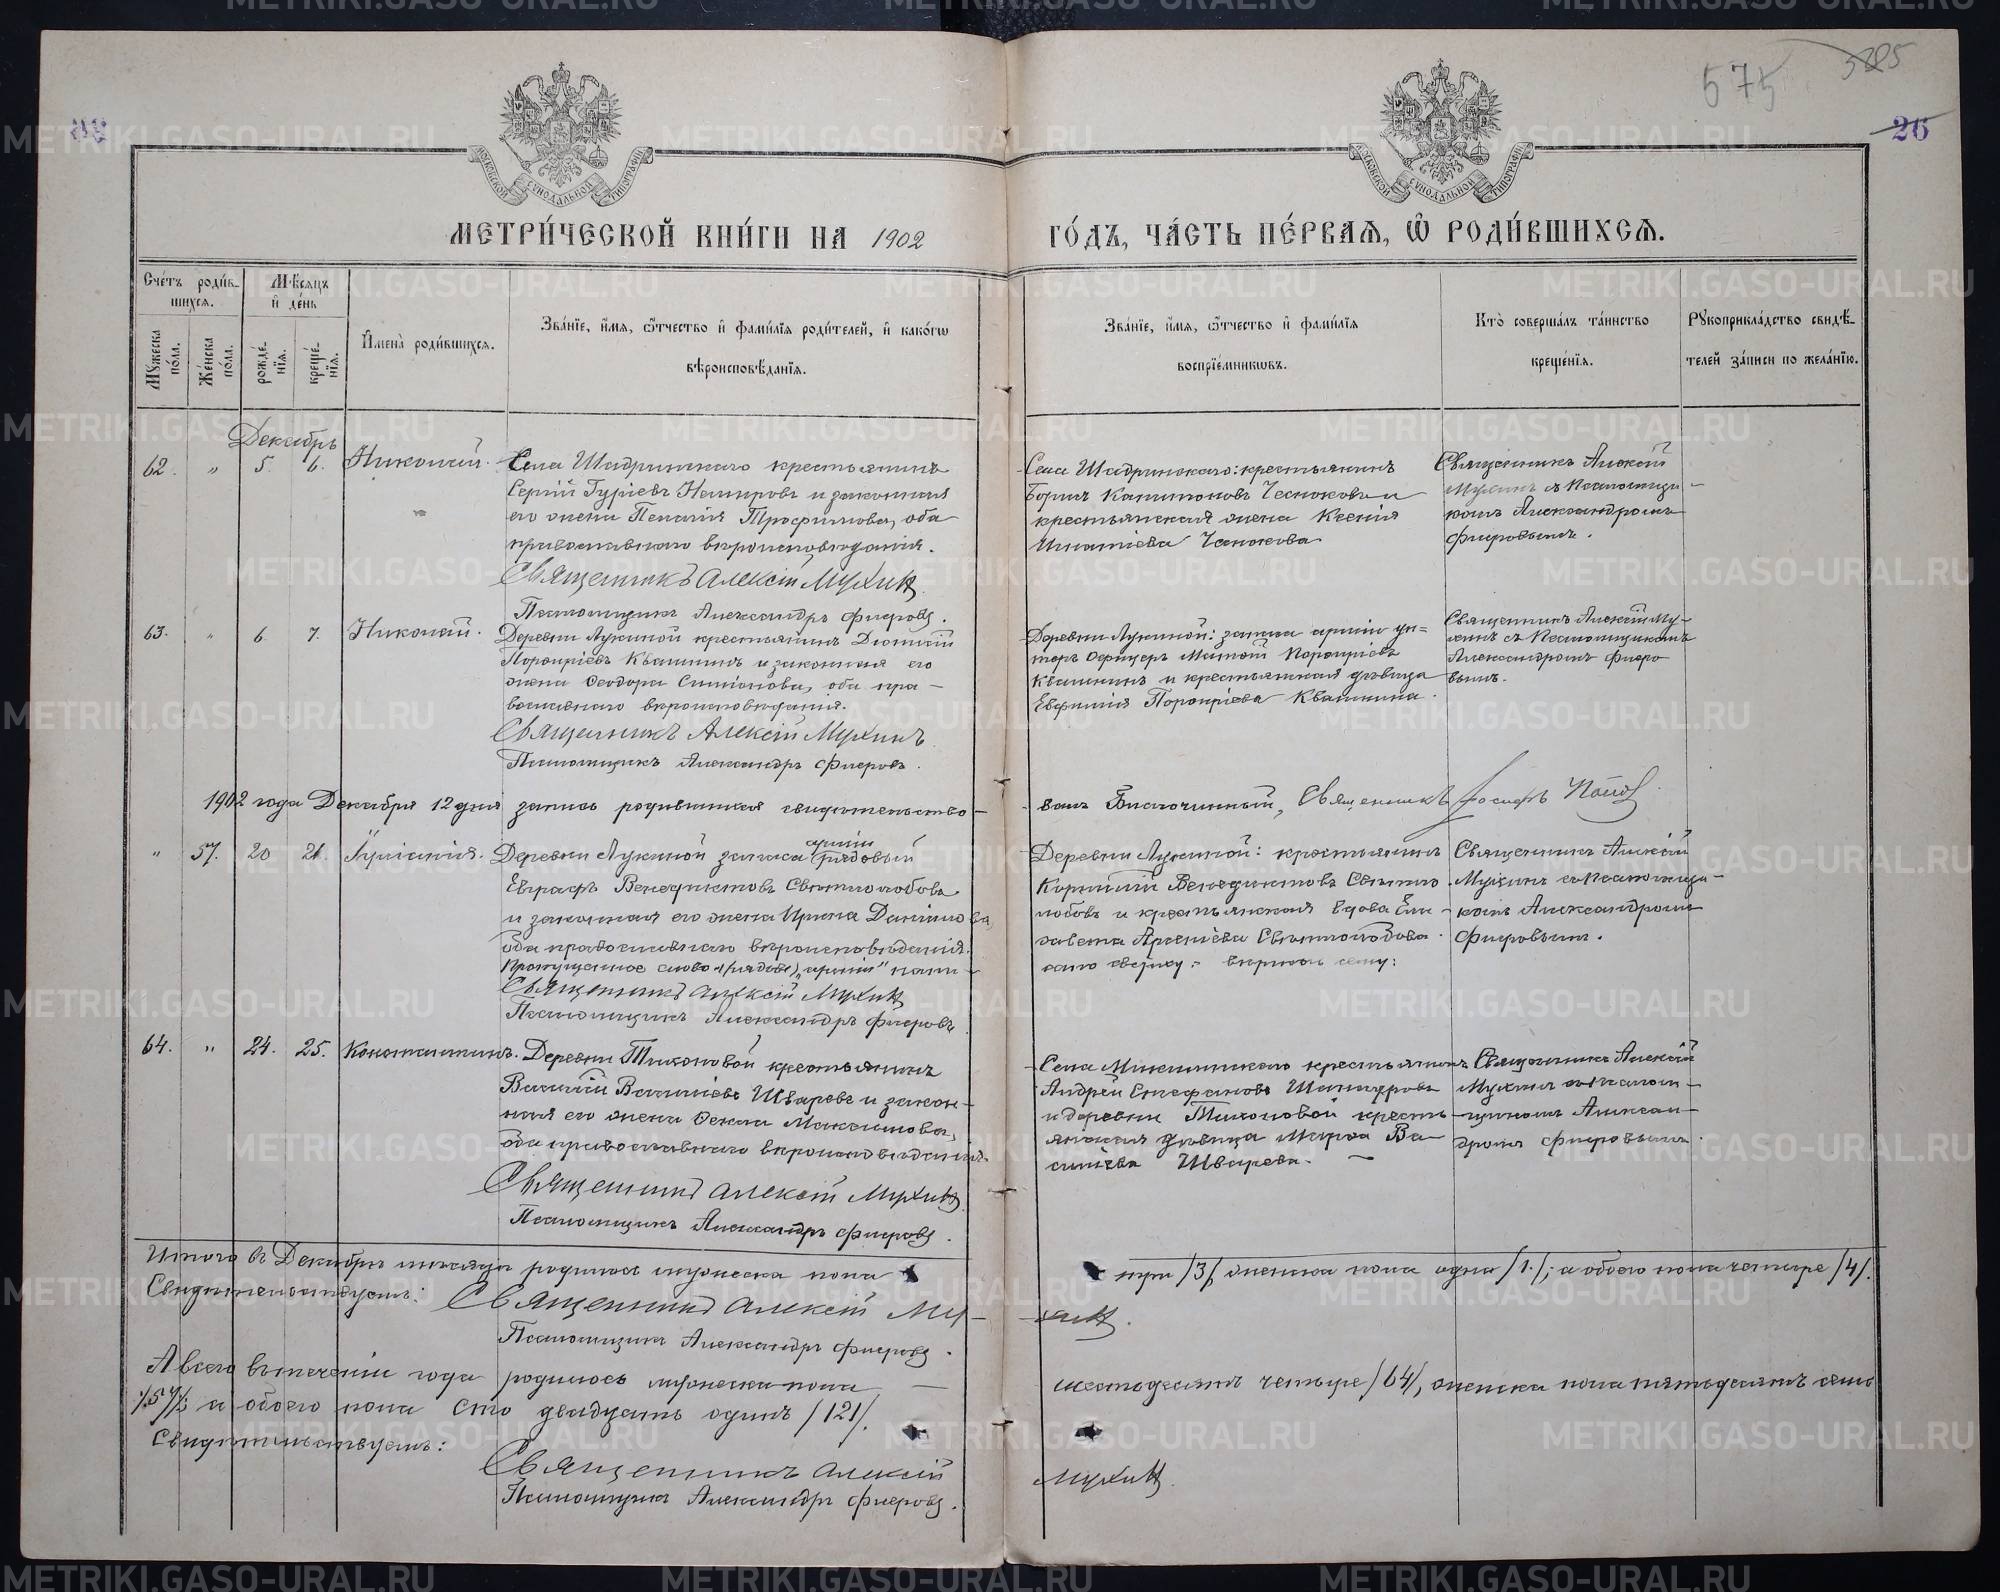 575
585
26
МОСКОВСКОЙ СѴНОДАЛЬНОЙ ТИПОГРАФІИ
МОСКОВСКОЙ СѴНОДАЛЬНОЙ ТИПОГРАФІИ
МЕТРИ́ЧЕСКОЙ КНИ́ГИ НА 1902 ГО́ДЪ, ЧА́СТЬ ПЕ́РВАѦ, Ѽ РОДИ́ВШИХСѦ.
Сче́тъ роди́в-
шихсѧ.
Мѣ́сяцъ
и҆ де́нь
Мꙋ́жеска по́ла.
Же́нска по́ла.
рожде́-
нїѧ.
креще́-
нїѧ.
И҆мена̀ роди́вшихсѧ.
Зва́нїе, и҆́мѧ, ѻ҆́тчество и҆ фами́лїѧ роди́телей, и҆ како́гѡ
вѣроисповѣ́данїѧ.
Зва́нїе, и҆́мѧ, ѻ҆́тчество и҆ фами́лїѧ
воспрїе́мникѡвъ.
Кто̀ соверша́лъ та́инство
креще́нїѧ.
Рꙋкоприкла́дство свидѣ́-
телей за́писи по жела́нїю.
Декабрь
62. " 5. 6. Николай.
Села Шадринскаго крестьянинъ
Сергій Гуріевъ Немировъ и законная
его жена Пелагія Трофимова, оба
православнаго вѣроисповѣданія.
Священникъ Алексій Мухин
Псаломщикъ Александръ Фигеровъ.
Села Шадринскаго: крестьянинъ
Борисъ Капитоновъ Чесноковъ и
крестьянская жена Ксенія
Игнатіева Чеснокова
Священникъ Алексій
Мухинъ съ Псаломщи-
комъ Александромъ
Фигеровымъ.
63. " 6. 7. Николай.
Деревни Лукиной крестьянинъ
Порфиріевъ Квашнинъ и законная его
жена Ѳеодора Симіонова, оба пра-
вославнаго вѣроисповѣданія.
Священникъ Алексій Мухинъ
Псаломщикъ Александръ Фигеровъ.
Деревни Лукиной: запаса арміи ун-
теръ офицеръ Порфиріевъ
Квашнинъ и крестьянская дѣвица
Евфимія Порфиріева Квашнина.
Священникъ Алексій Му-
хинъ съ Псаломщикомъ
Александромъ Фигеро
вымъ.
1902 года Декабря 12 дня запись родившихся свидѣтельство-
валъ Благочинный, Священникъ Іосифъ Попов
" 57. 20 21. Іуліанія.
Деревни Лукиной запаса арміи рядовый
Евграфъ Венедиктовъ Свѣтлолобовъ
и законная его жена Ирина Данилова,
оба православнаго вѣроисповѣданія.
Пропущенное слово "арміи" напи-
сано сверху: вѣрить сему:
Священникъ Алексій Мухин
Псаломщикъ Александръ Фигеровъ
Деревни Лукиной: крестьянинъ
Корнилій Венедиктовъ Свѣтло
лобовъ и крестьянская вдова Ели-
завета Арсеніева Свѣтлолобова.
Священникъ Алексій
Мухинъ съ Псаломщи-
комъ Александромъ
Фигеровымъ.
64. " 24. 25. Константинъ.
Деревни Тихоновой крестьянинъ
Василій Василіевъ Шваревъ и закон-
ная его жена Ѳекла Максимова,
оба православнаго вѣроисповѣданія.
Священникъ Алексій Мухин
Псаломщикъ Александръ Фигеровъ.
крестьянинъ
Андрей Стефановъ
и деревни Тихоновой кресть-
янская дѣвица Марѳа Ва-
силіева Шварева.
Священникъ Алексій
Мухинъ съ Псалом-
щикомъ Алексан-
дромъ Фигеровымъ.
Итого въ Декабрѣ мѣсяцѣ родилось мужеска пола три /3/, женска пола одна /1./; а обоего пола четыре /4/.
Свидѣтельствуемъ: Священникъ Алексій Му-хин.
Псаломщикъ Александръ Фигеровъ.
А всего въ теченіи года родилось мужеска пола шестьдесятъ четыре /64/, женска пола пятьдесятъ семь
/57/; а обоего пола сто двадцать одинъ /121/.
Свидѣтельствуемъ:
Священникъ Алексій Мухин.
Псаломщикъ Александръ Фигеровъ.
METRIKI.GASO-URAL.RU